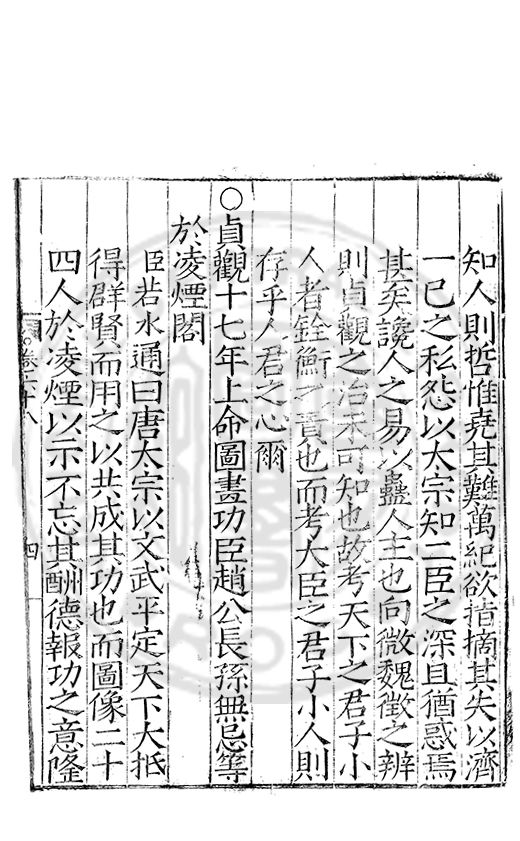 知人則哲惟堯其難萬紀欲指摘其失以濟
一己之私怨以太宗知二臣之深且猶惑焉
甚矣讒人之易以蠱人主也向微魏徵之辨
則貞觀之治未可知也故考天下之君子小
人者銓衡之責也而考大臣之君子小人則
存乎人君之心爾
○貞觀十七年上命圖畫功臣趙公長孫無忌等
於凌煙閣
臣若水通曰唐太宗以文武平定天下大抵
得群賢而用之以共成其功也而圖像二十
四人於凌煙以示不忘其酬德報功之意隆
卷六十八
四